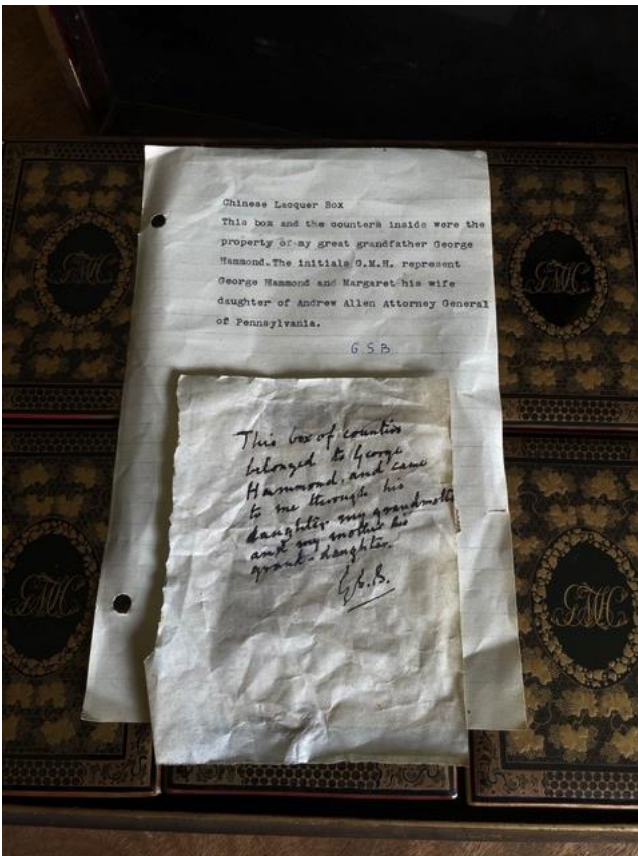 Chinese Lacquer Box
This box and the counters inside were the
property of my great grandfather George
Hammond.The initials G.M.H. represent
George Hammond and Margaret his wife
daughter of Andrew Allen Attorney General
of Pennsylvania.
G S B
This box of counters
belonged to George
Hammond, and came
to me through his
daughter my grandmother
and my mother his
grand-daughter.
G.S.B.
GMH
GMH
GMH
GMH